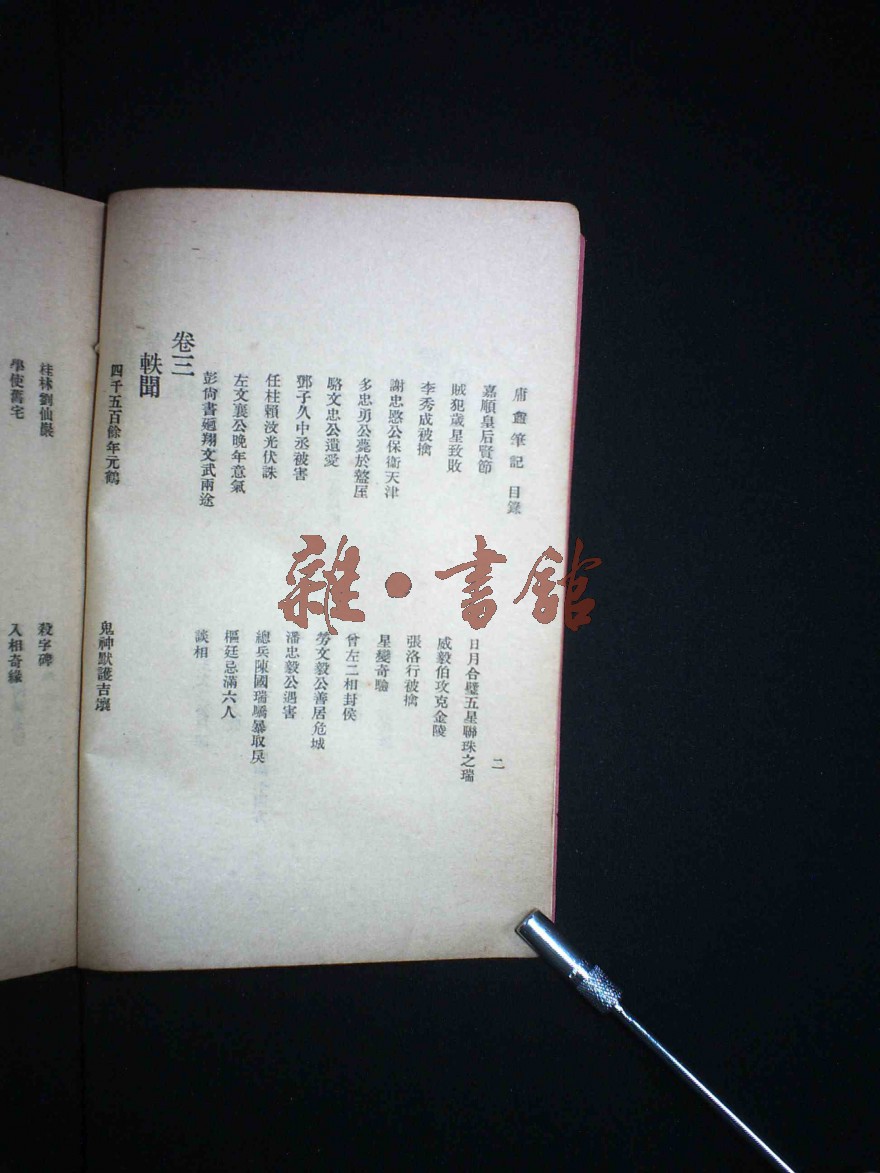 庸盦筆記 目錄 二
嘉順皇后賢節
日月合璧五星聯珠之瑞
賊犯歲星致敗
威毅伯攻克金陵
李秀成被擒
張洛行被擒
謝忠愍公保衛天津
星變奇驗
多忠勇公薨於盩厔
曾左二相封侯
駱文忠公遺愛
勞文毅公善居危城
鄧子久中丞被害
潘忠毅公遇害
任柱賴汶光伏誅
總兵陳國瑞驕暴取戾
左文襄公晚年意氣
樞廷忌滿六人
彭尙書廻翔文武兩途
談相
卷三
軼聞
四千五百餘年元鶴
鬼神默護吉壤
桂林劉仙巖
殺字碑
學使舊宅
入相奇緣
雜·書館